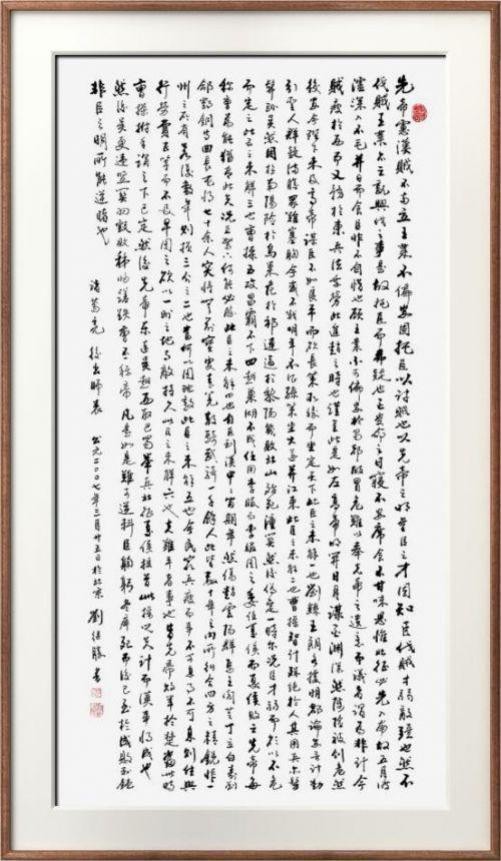 先帝慮漢賊不兩立王業不偏安故托臣以討賊也以先帝之明量臣之才固知臣伐賊才弱敵強也然不
伐賊王業亦亡孰與伐之是故托臣而弗疑也臣受命之日寢不安席食不甘味思惟北征必先入南故五月渡
瀘深入不毛并日而食臣非不自惜也顧王業不可偏安於蜀都故冒危難以奉先帝之遺意而議者謂為非計今
賊疲於西而又務於東兵法乘勞此進趨之時也謹陳此事如左高帝明并日月謀臣淵深然涉險被創危然
後安今陛下未及高帝謀臣不如良平而欲以長策取勝坐定天下此臣之未解一也劉繇王朗各據州郡論安言計動
引聖人群疑滿腹眾難塞胸今歲不戰明年不征孫策坐大并江東此臣之未解二也曹操智計殊絕於人其用兵也
孫吳然困於南陽險於烏巢危於祁連逼於黎陽幾敗北山殆死潼關然後偽定一時耳況臣才弱而欲以不危
而定之此臣之未解三也曹操五攻昌霸不下四越巢湖不成任用李服而李服圖之委任夏侯而夏侯敗亡先帝每
稱操為能猶有此失況臣駑下何能必勝此臣之未解四也自臣到漢中中間期年然喪趙雲陽群馬玉閻芝丁立白壽劉
郃鄧銅等曲長屯將七十餘人突將無前賨叟青羌散騎武騎一千餘人此皆數十年之內所糾合四方之精銳非一
州之所有若復數年則損三分之二也當何以圖敵此臣之未解五也今民窮兵疲而事不可息事不可息則住與
行勞費正等而不及早圖之欲以一州之地與賊持久此臣之未解六也夫難平者事也昔先帝敗軍於楚當此時
曹操拊手謂天下已定然後先帝東連吳越西取巴蜀舉兵北征夏侯授首此操之失計而漢事將成也
然後吳更違盟關羽毀敗秭歸蹉跌曹丕稱帝凡事如是難可逆料臣鞠躬盡瘁死而後已至於成敗利鈍
非臣之明所能逆睹也 諸葛亮後出師表 公元二〇〇七年三月廿五日於北京 劉勝書